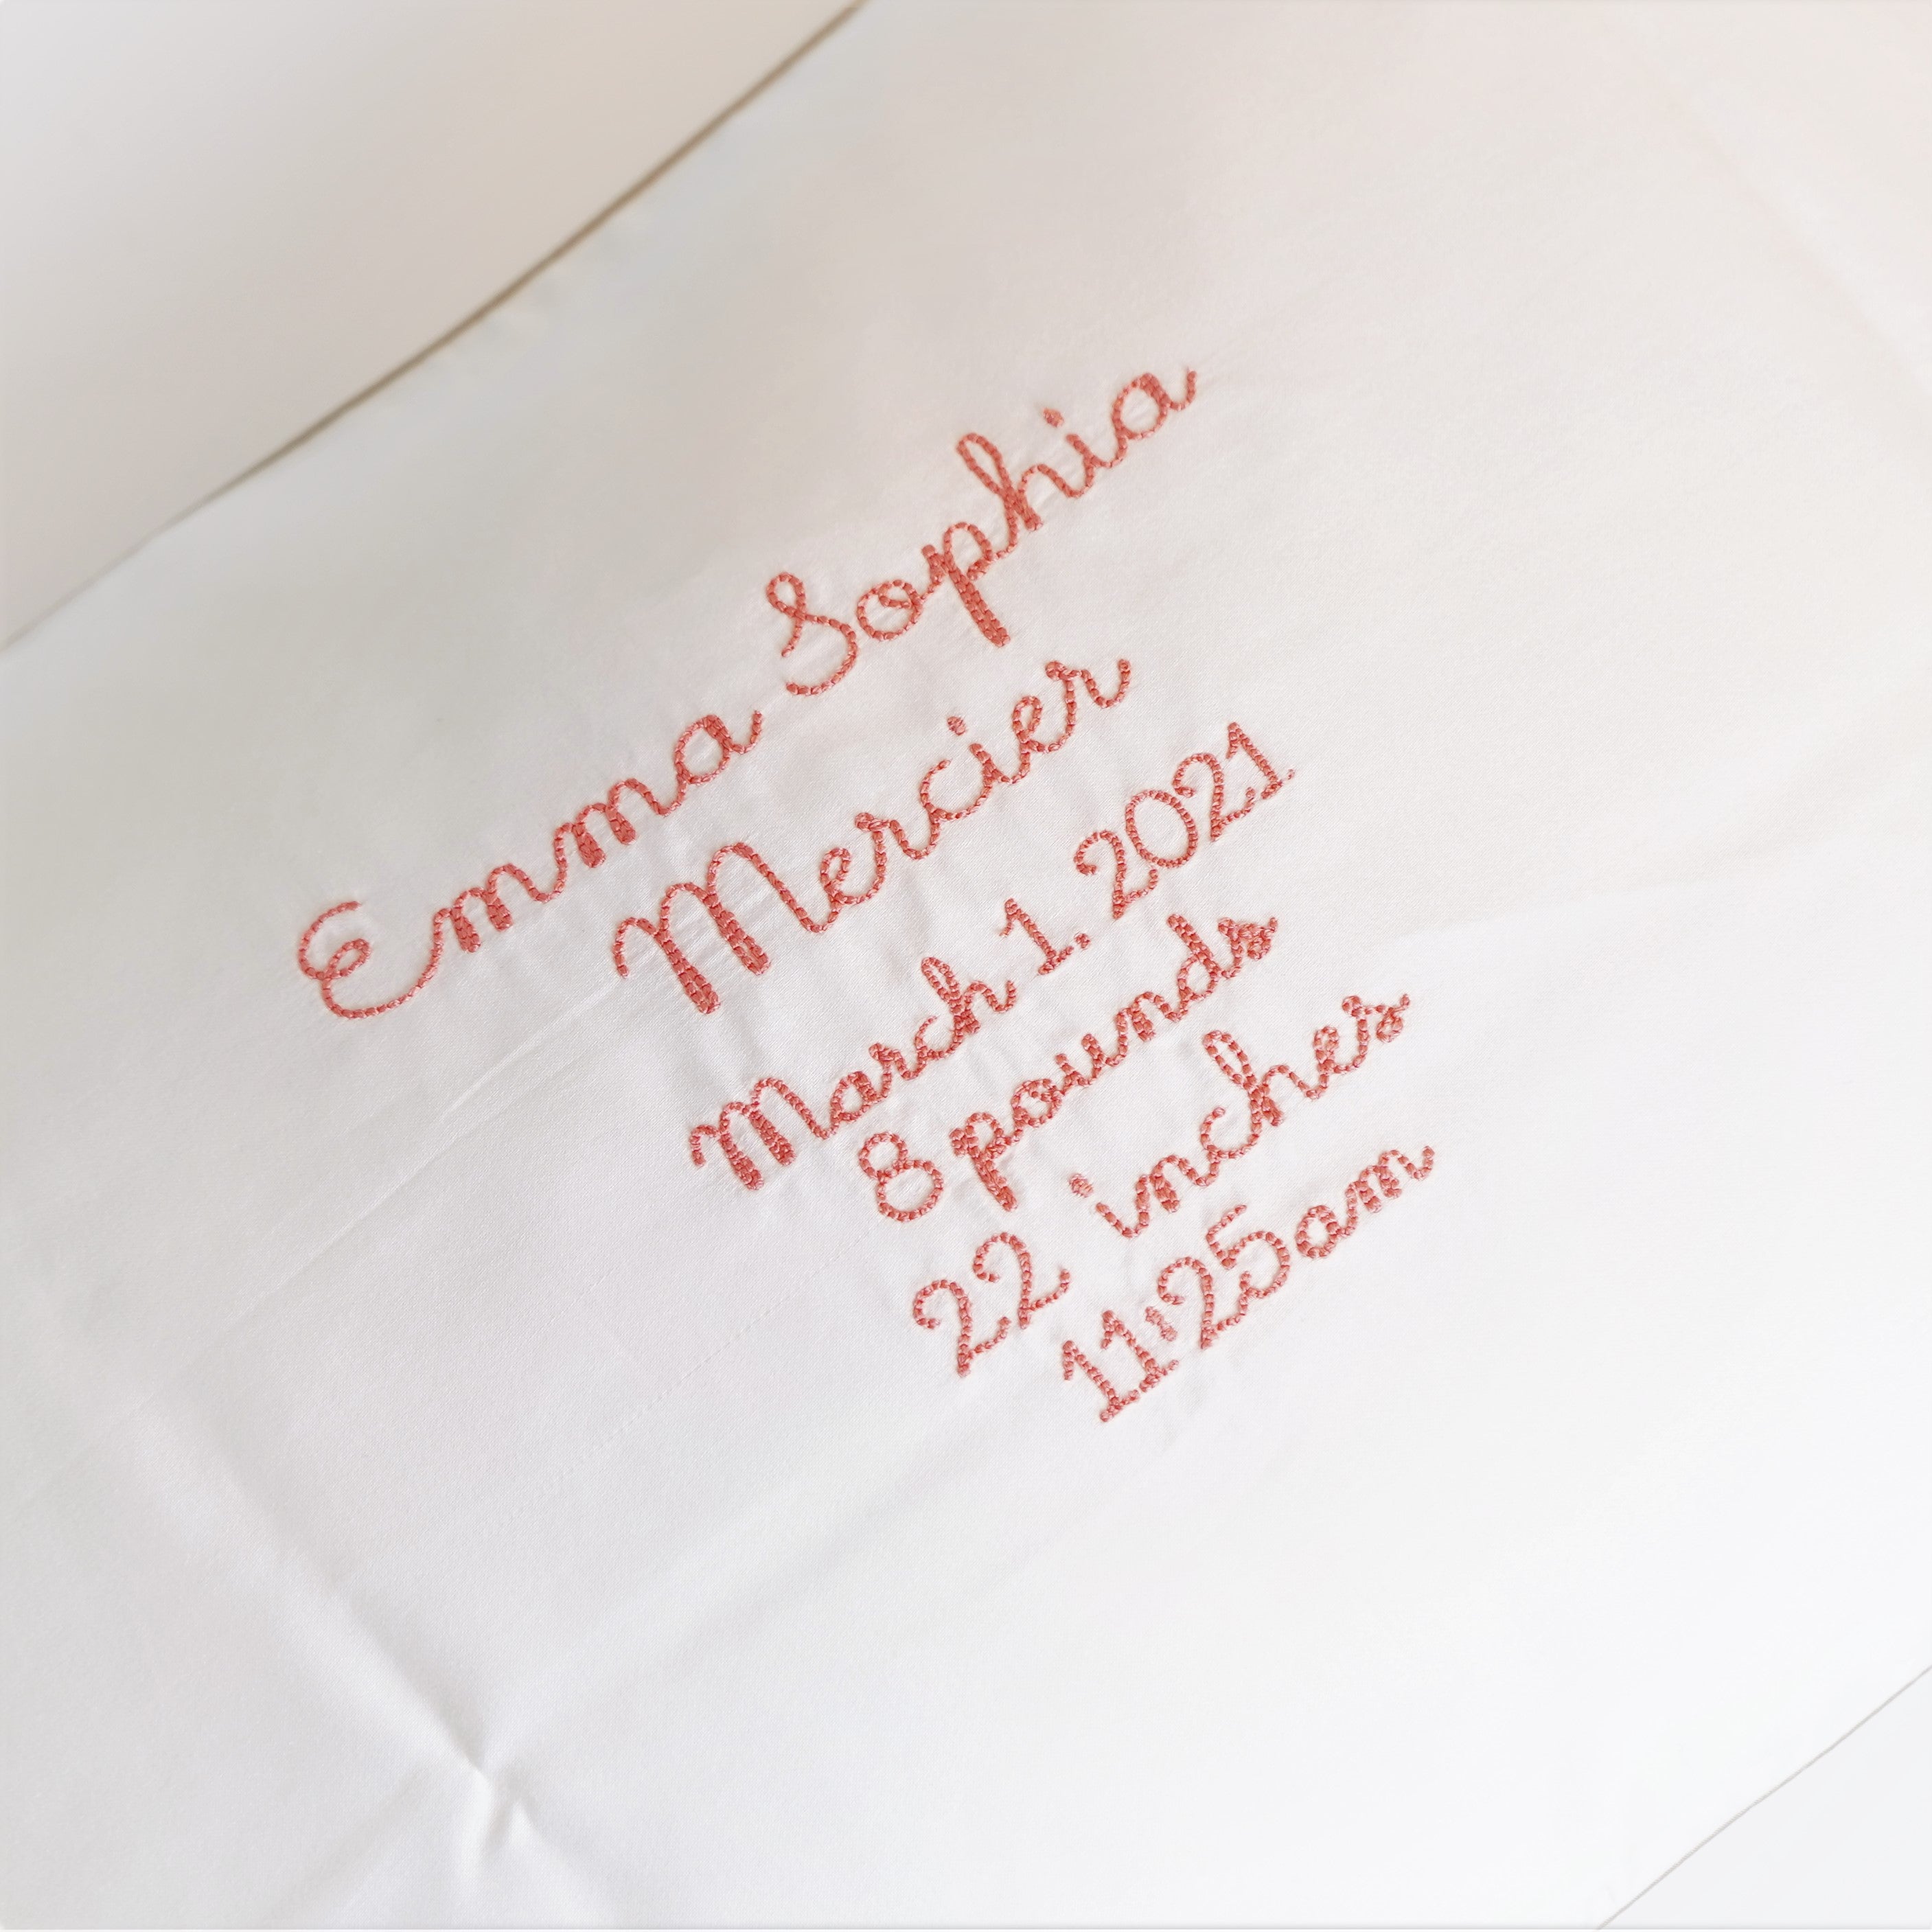 Emma Sophia
Mercier
March 1. 2021
8 pounds
22 inches
11:25am